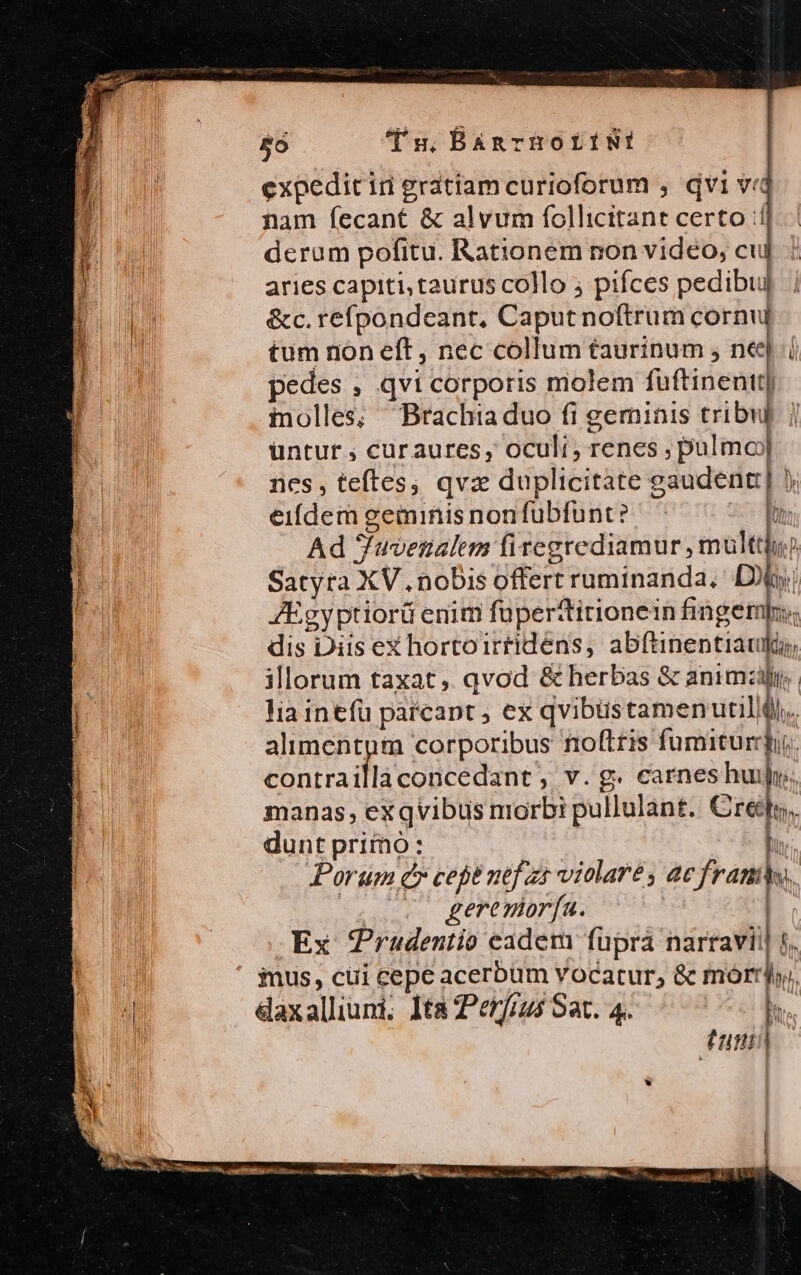 50 TH. BARTHOLINI
expedit in gratiam curiosorum , qvi
nam secant & alvum sollicitant certo
derum positu. Rationem non video, cur
aries capiti, taurus collo ; pisces pedibus
&c. respondeant. Caput nostrum cornu
tum non est, nec collum taurinum , nec
pedes , qvi corporis molem sustinent
molles. Brachia duo si geminis tribu
untur , cur aures, oculi, renes , pulmo
nes, testes, qvæ duplicitate gaudent
eisdem geminis non subsunt?
Ad Juvenalem si regrediamur , mult
Satyra XV. nobis offert ruminanda.
Ægyptiorū enim superstitione in fingen
dis Diis ex horto irridens, abstinentiam
illorum taxat, qvod & herbas & anima
lia in esu parcant , ex qvibus tamen utile
alimentum corporibus nostris sumitur
contra illa concedant , v. g. carnes hu
manas, ex qvibus morbi pullulant. Cre
dunt primò :
Porum & cepe nefas violare , ac fran
gere morsu.
Ex Prudentio eadem supra narravi
mus, cui cepe acerbum vocatur, & mor
dax allium. Ita Persius Sat. 4.
tuni